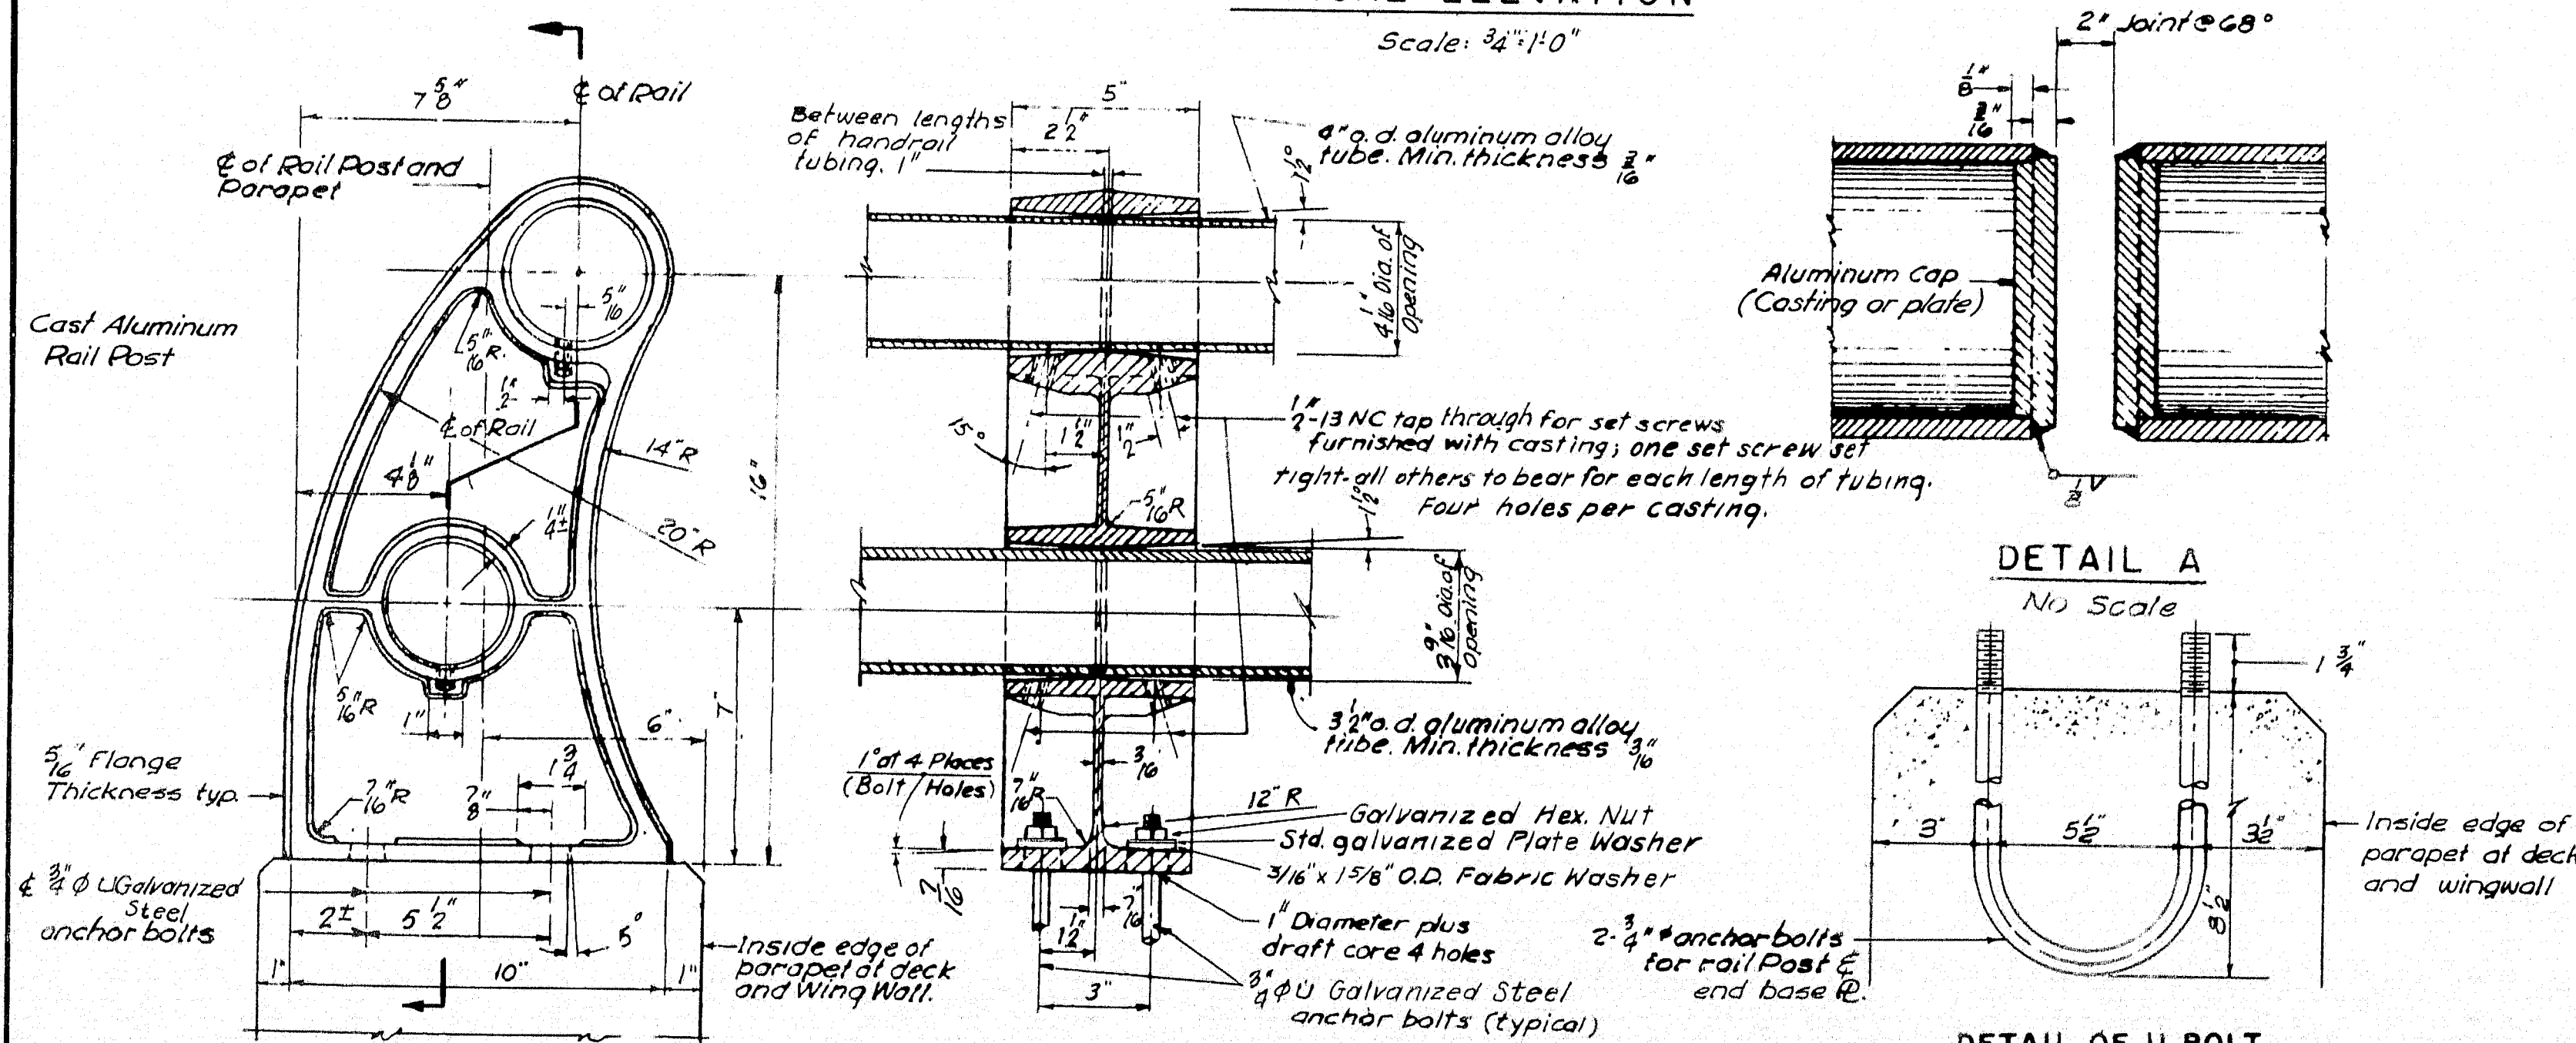 Scale: 3/4"=1'-0"
7 5/8"
℄ of Rail
℄ of Rail Post and
Parapet
Cast Aluminum
Rail Post
5/16"
5/16" R.
1/2"
℄ of Rail
4 1/8"
14" R
20" R
1/4"±
16"
7"
5/16" R
1"
6"
5/16" Flange
Thickness typ.
7/16" R
7/8"
1 3/4"
℄ 3/4" ϕ U Galvanized
Steel
anchor bolts
2±
5 1/2"
5°
1"
10"
1"
Inside edge of
parapet at deck
and Wing Wall.
Between lengths
of handrail
tubing. 1"
5"
2 1/2"
4" o.d. aluminum alloy
tube. Min. thickness 3/16"
1 1/2°
4 1/16" Dia. of
Opening
15°
1 1/2"
1/2"
1/2"-13 NC tap through for set screws
furnished with casting; one set screw set
tight-all others to bear for each length of tubing.
Four holes per casting.
5/16" R
1 1/2°
3 9/16" Dia. of
Opening
3 1/2" o.d. aluminum alloy
tube. Min. thickness 3/16"
1° at 4 Places
(Bolt Holes)
7/16" R
3/16
12" R
Galvanized Hex. Nut
Std. galvanized Plate Washer
3/16" x 1 5/8" O.D. Fabric Washer
7/16
1 1/2"
7/16"
1" Diameter plus
draft core 4 holes
3"
3/4" ϕ U Galvanized Steel
anchor bolts (typical)
2" Joint @ 68°
1/8"
3/16"
Aluminum Cap
(Casting or plate)
1/8
DETAIL A
No Scale
1 3/4"
3"
5 1/2"
3 1/2"
8 1/2"
Inside edge of
parapet at deck
and wingwall
2-3/4" ϕ anchor bolts
for rail Post &
end base ℄.
DETAIL OF U BOLT